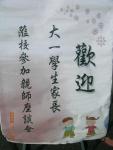 歡迎
大一學生家長
蒞校參加親師座談會